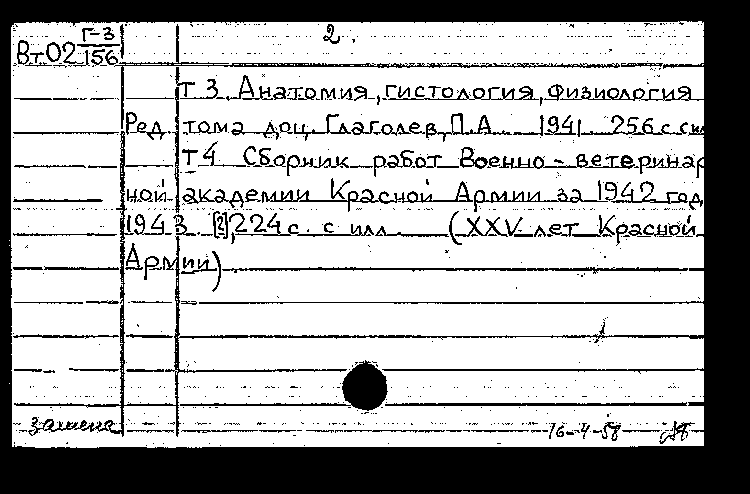 Г-3
2.
Вт02 156
Т 3, Анатомия, гистология, физиология
Ред. тома доц. Глаголев, П.А. 1941 256 с с ил
Т 4 Сборник работ Военно-ветеринар
ной академии Красной Армии за 1942 год
1943 [2], 224 с. с илл. (XXV лет Красной
Армии)
замена
16-4-58